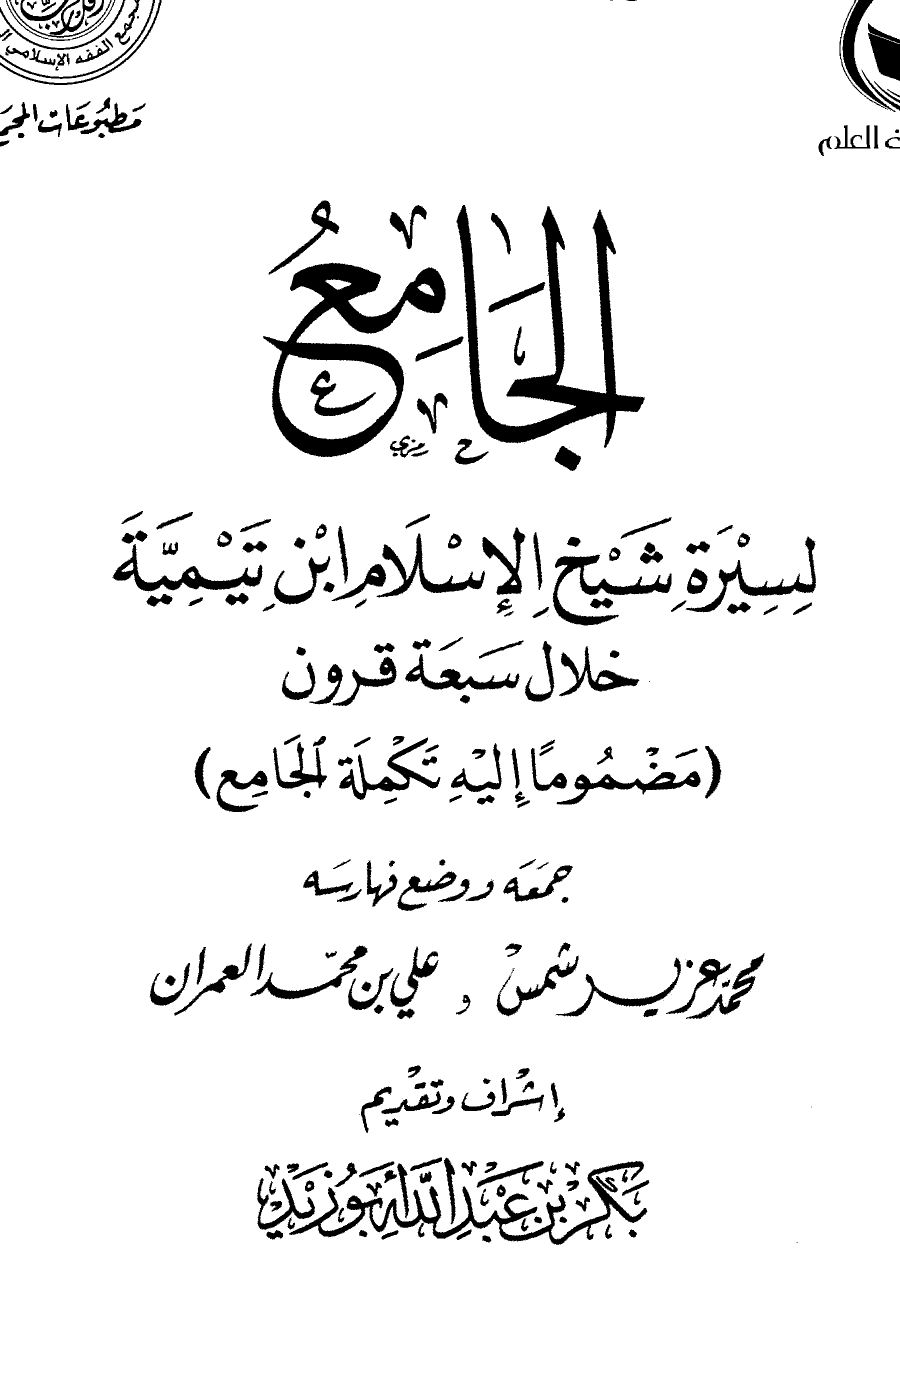 مجمع الفقه الإسلامي
مَطبُوعَات المجمَع
العلم
الجَامِعُ
لِسِيْرَةِ شَيْخِ الإِسْلَامِ ابْنِ تَيْمِيَّةَ
خلال سَبعَة قرون
(مَضْمُومًا إِليْهِ تَكْمِلَة الجَامِع)
جمعَه ووضع فهارسَه
محمّد عزير شمس و علي بن محمّد العمران
إشراف وتقديم
بَكر بْن عَبْد اللَّه أَبُو زيْد